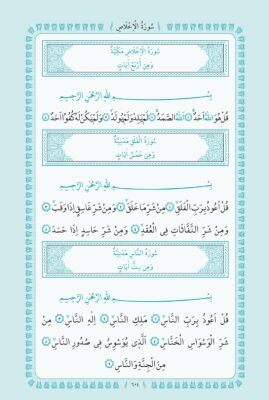 سُورَةُ الْإِخْلَاصِ
سُورَةُ الْإِخْلَاصِ مَكِّيَّةٌ
وَهِيَ أَرْبَعُ آيَاتٍ
بِسْمِ اللّٰهِ الرَّحْمٰنِ الرَّحِيمِ
قُلْ هُوَ اللّٰهُ اَحَدٌ ﴿١﴾ اَللّٰهُ الصَّمَدُ ﴿٢﴾ لَمْ يَلِدْ وَلَمْ يُولَدْ ﴿٣﴾ وَلَمْ يَكُنْ لَهُ كُفُوًا اَحَدٌ ﴿٤﴾
سُورَةُ الْفَلَقِ مَدَنِيَّةٌ
وَهِيَ خَمْسُ آيَاتٍ
بِسْمِ اللّٰهِ الرَّحْمٰنِ الرَّحِيمِ
قُلْ اَعُوذُ بِرَبِّ الْفَلَقِ ﴿١﴾ مِنْ شَرِّ مَا خَلَقَ ﴿٢﴾ وَمِنْ شَرِّ غَاسِقٍ اِذَا وَقَبَ ﴿٣﴾
وَمِنْ شَرِّ النَّفَّاثَاتِ فِي الْعُقَدِ ﴿٤﴾ وَمِنْ شَرِّ حَاسِدٍ اِذَا حَسَدَ ﴿٥﴾
سُورَةُ النَّاسِ مَدَنِيَّةٌ
وَهِيَ سِتُّ آيَاتٍ
بِسْمِ اللّٰهِ الرَّحْمٰنِ الرَّحِيمِ
قُلْ اَعُوذُ بِرَبِّ النَّاسِ ﴿١﴾ مَلِكِ النَّاسِ ﴿٢﴾ اِلٰهِ النَّاسِ ﴿٣﴾ مِنْ
شَرِّ الْوَسْوَاسِ الْخَنَّاسِ ﴿٤﴾ اَلَّذِي يُوَسْوِسُ فِي صُدُورِ النَّاسِ ﴿٥﴾
مِنَ الْجِنَّةِ وَالنَّاسِ ﴿٦﴾
٦٠٤